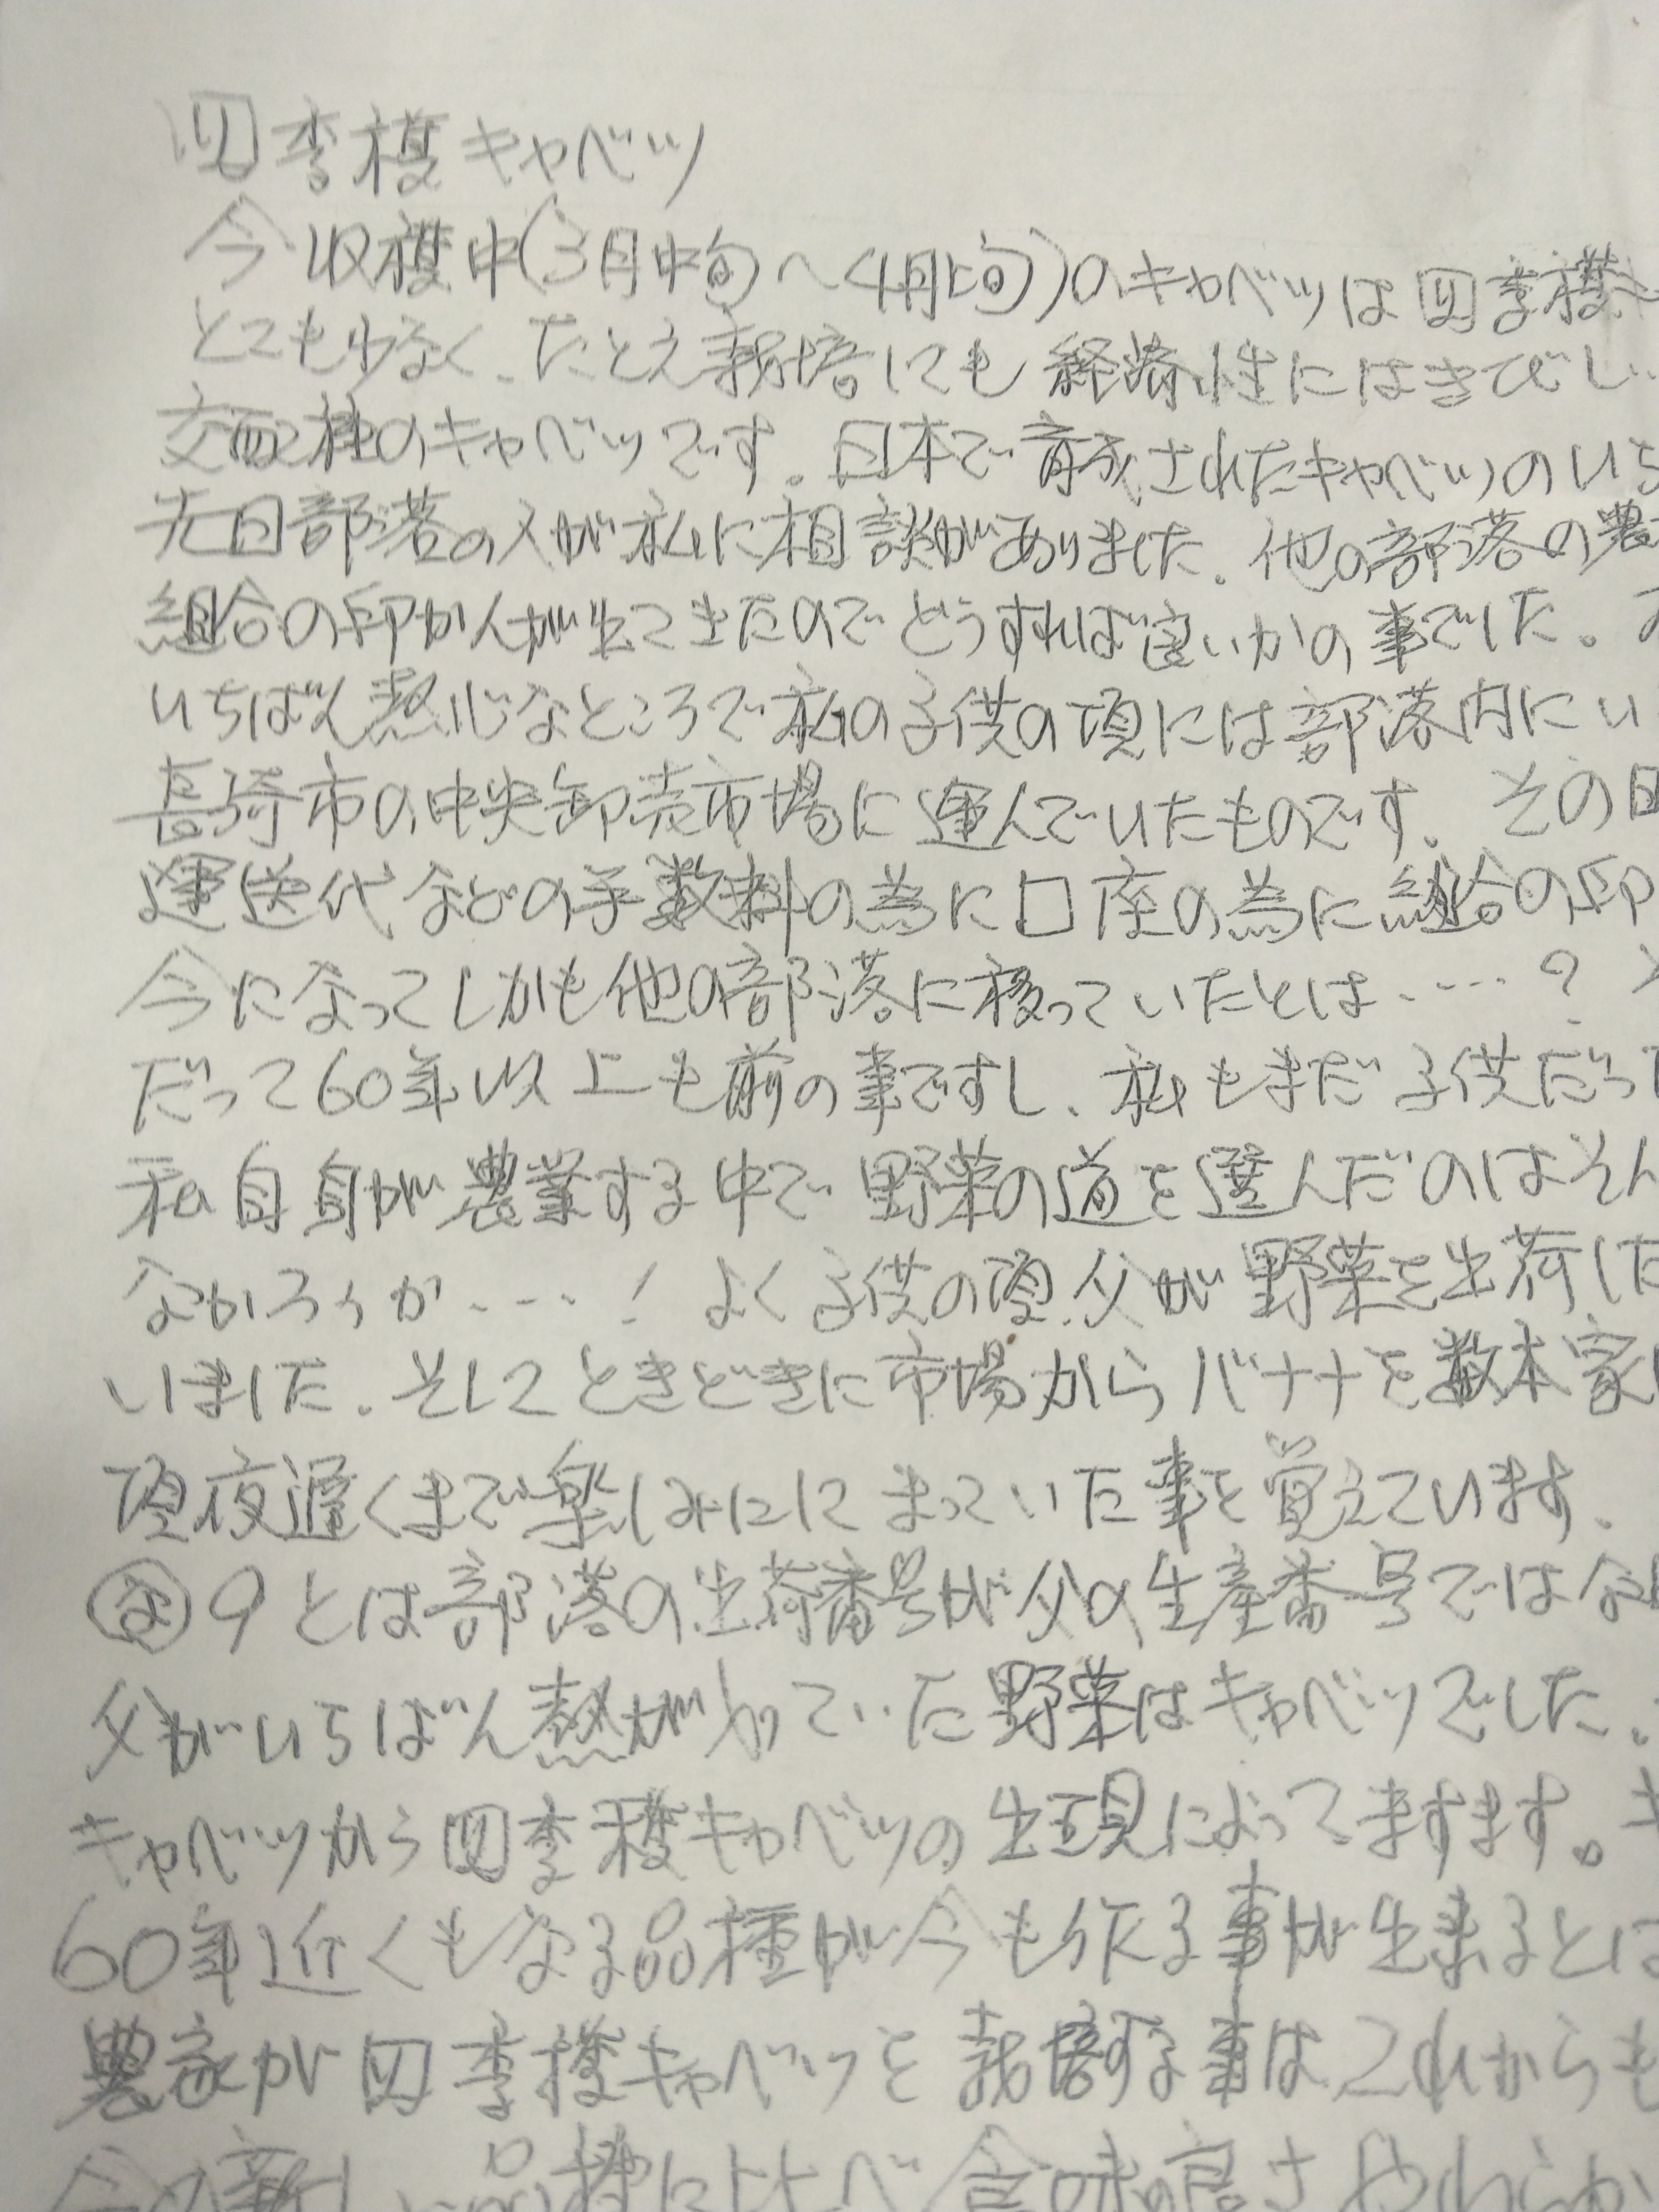 四季穫キャベツ
今収穫中(3月中旬〜4月上旬)のキャベツは四季穫キ
とても少なく、たとえ栽培しても経済性にはきびしい
交配種のキャベツです。日本で育成されたキャベツのいち
先日部落の人が私に相談がありました。他の部落の農
組合の印かんが出てきたのでどうすれば良いかの事でした。
いちばん熱心なところで私の子供の頃には部落内にい
長崎市の中央卸売市場に運んでいたものです。その日
運送代などの手数料の為に口座の為に組合の印
今になってしかも他の部落に移っていたとは‥‥?
だって60年以上も前の事ですし、私もまだ子供だった
私自身が農業する中で野菜の道を選んだのはそん
なかろうか‥‥! よく子供の頃、父が野菜を出荷した
いました。そしてときどきに市場からバナナを数本家に
頃夜遅くまで楽しみにしてまっていた事を覚えています。
㋤9とは部落の出荷番号が父の生産番号では
父がいちばん熱が入っていた野菜はキャベツでした。
キャベツから四季穫キャベツの出現によってますます。キ
60年近くもなる品種が今も作る事が出来るとは
農家が四季穫キャベツを栽培する事はこれからも
今の新しい品種に比べ食味の良さやわらか